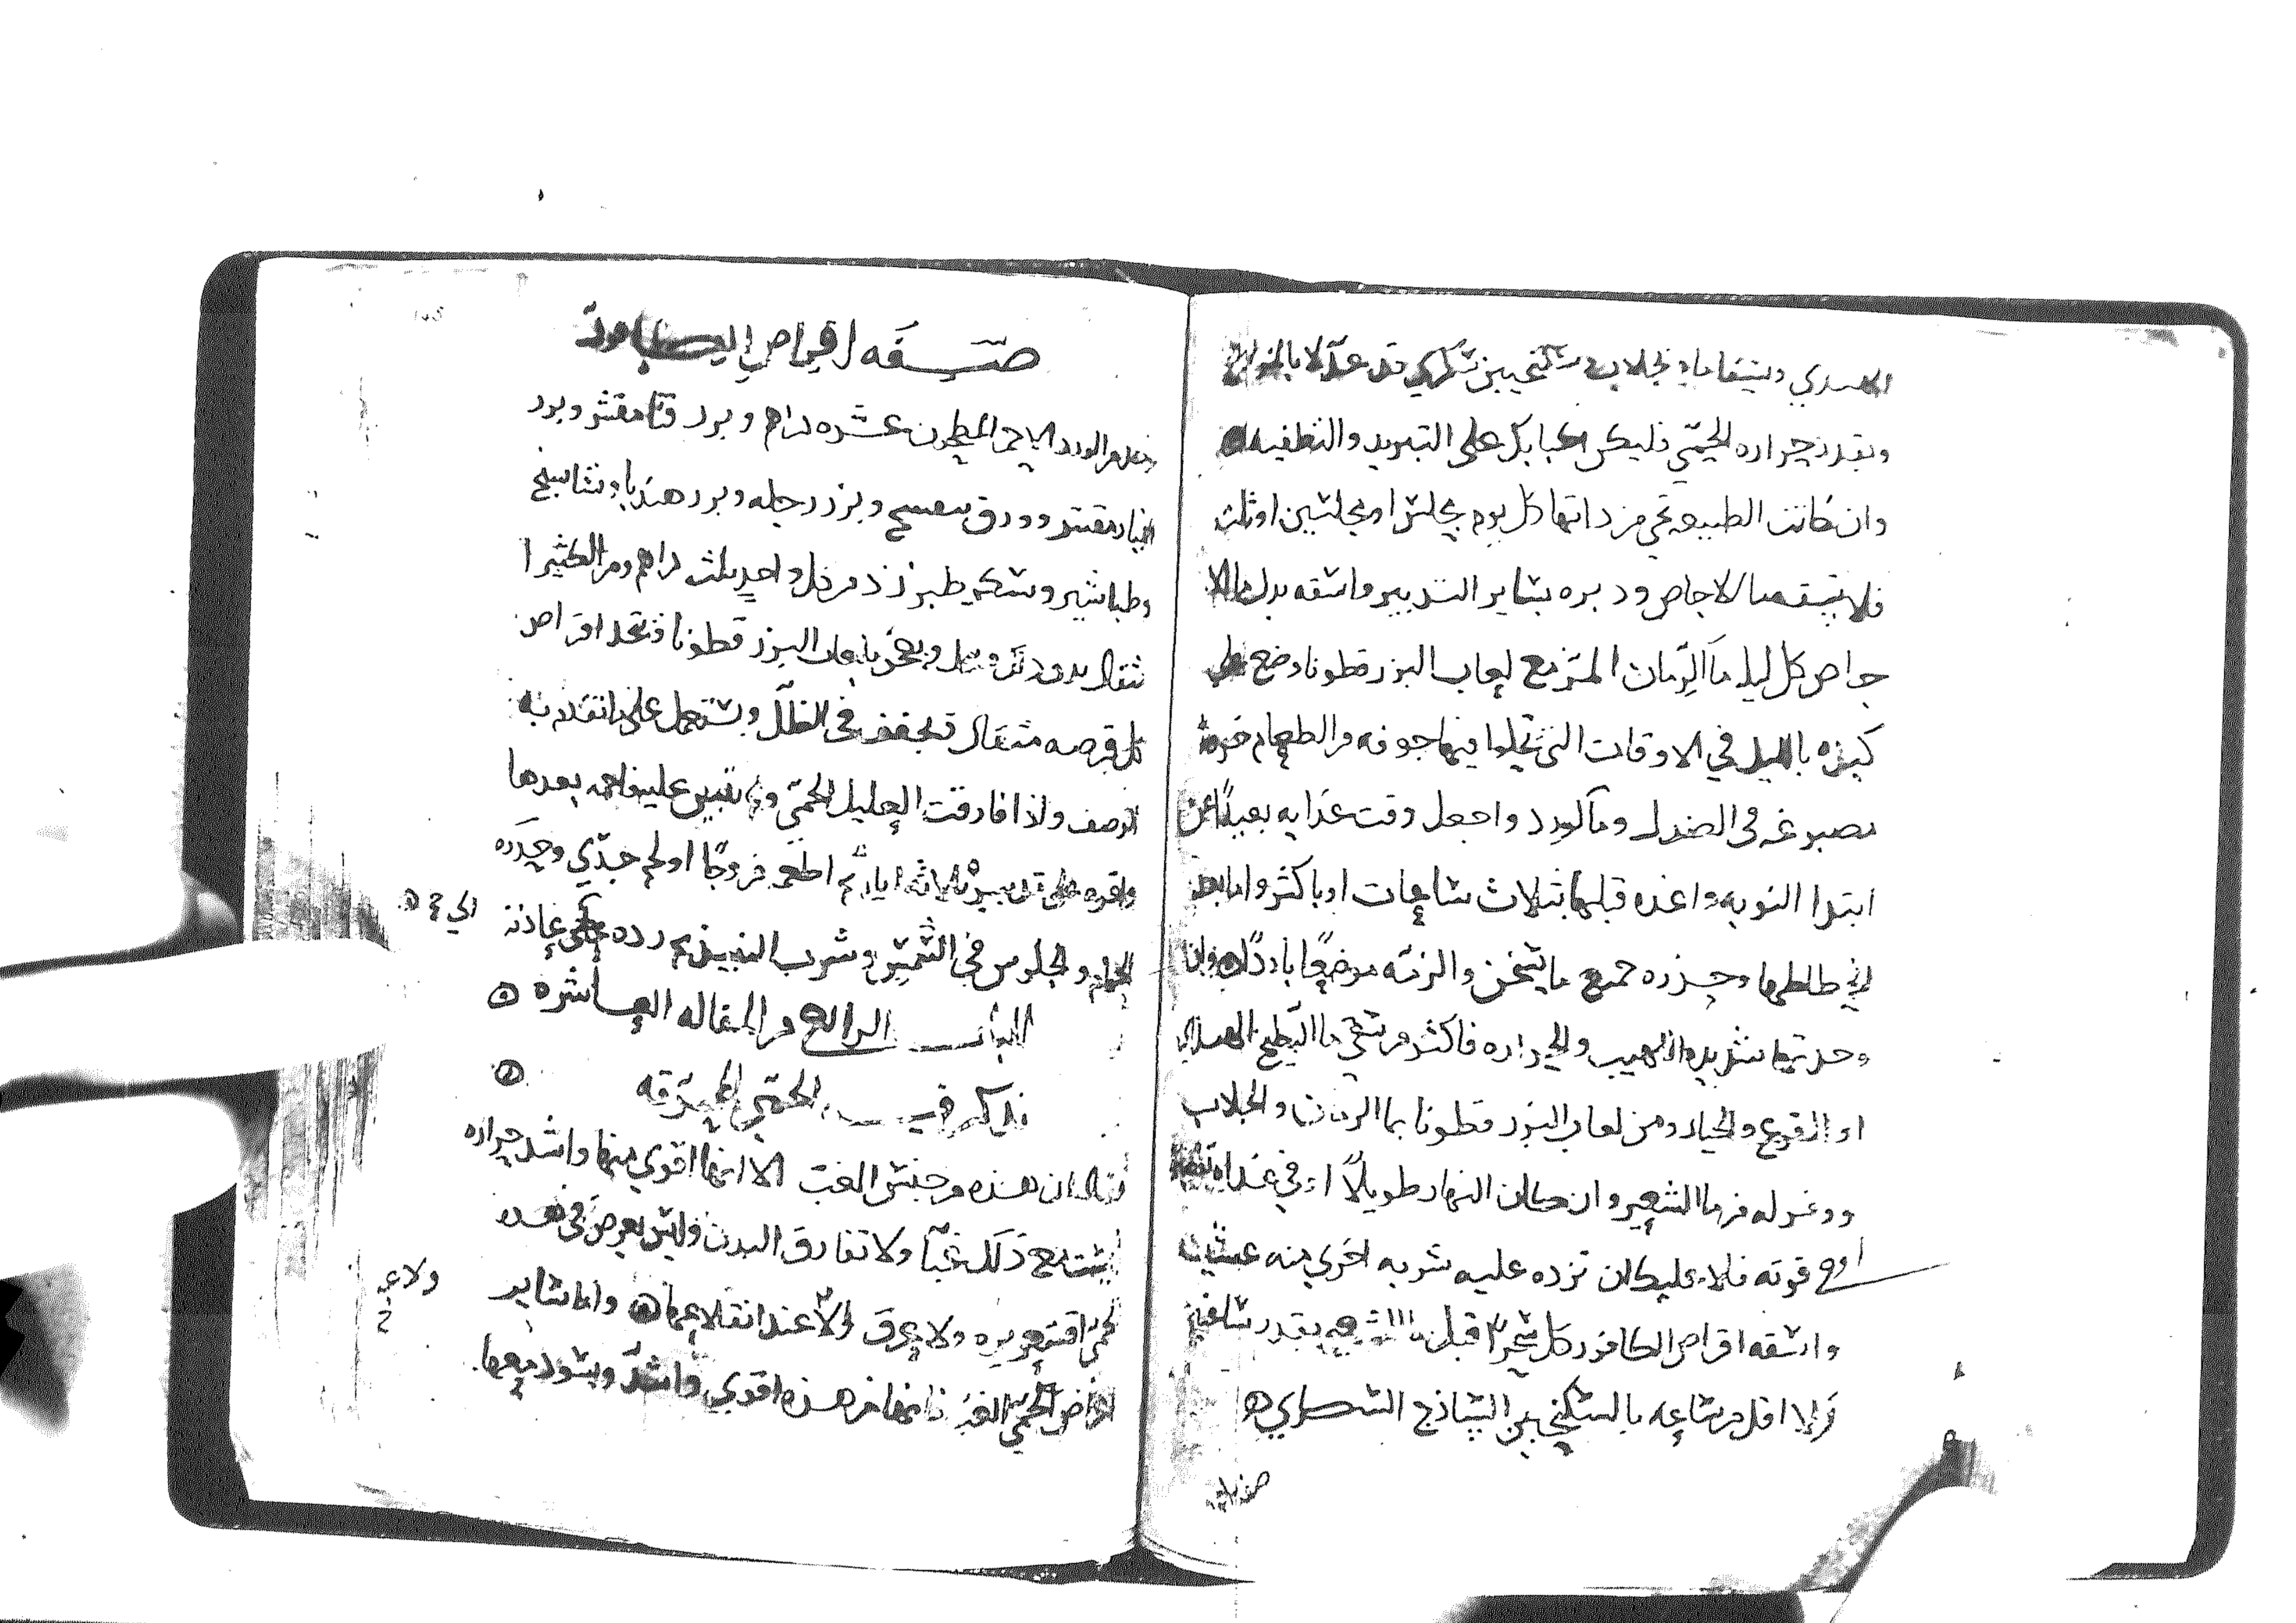 الهندي وبسقاماء بجلاب وسكنجبين سكري قد عدلا بالمزاج
وبقدر حراره الحمي فليكن اكبابك على التبريد والتطفيه
وان كانت الطبيعه تجي من ذاتها كل يوم مجلس او مجلسين او ثلث
فلا تسقه ما الاجاص ودبره بساير التدبير واسقه بدل ما الا
جاص كل ليله ما الرمان المز مع لعاب البزر قطونا وضع على
كبده بالليل في الاوقات التي تخلوا فيها جوفه من الطعام خرقه
مصبوغه في الصندل وما الورد واجعل وقت غذايه بعيدًا عن
ابتدا النوبه واغذه قبلها بثلاث ساعات او باكثر واما بعد
انحطاطها وحذره جميع ما يسخن والزمه موضعًا باردًا وان
وحدتها شديده اللهيب والحراره فاكثر من سقي ما البطيخ الهندي
او القرع والخيار ومن لعاب البزر قطونا بما الرمان والجلاب
ودغر له من ما الشعير وان كان النهار طويلاً او في غذاه
قوته فلا عليك ان تزده عليه شربه اخري منه عشيه
واسقه اقراص الكافور كل سحر قبل ما الشعير بقدر ساعتين
ولا اقل من ساعه بالسكنجبين الساذج السكري ه
صفه اقراص
صفه اقراص الكافور
من الورد الاحمر المطحون عشره دراهم وبزر قثا مقشر وبزر
الخيار مقشر وورق بنفسج وبزر رجله وبزر هندبا ونشاستج
وطباشير وسكر طبرزذ من كل واحد ثلث دراهم ومن الكثيرا
مثقال يدق وينخل ويعجن بلعاب البزر قطونا وتتخذ اقراص
كل قرصه مثقال وتجفف في الظل ويستعمل على ما تقدم به
الوصف واذا فارقت العليل الحمي ولم تتبين عليه فاحمه بعدها
واقره على تدبيره ثلاثه ايام ثم اطعمه فروجًا او لحم جدي وحذره
الحمام والجلوس في الشمس وشرب النبيذ ثم رده الي عادته
الباب الرابع من المقاله العاشره ه
نذكر فيه الحمي المحرقه ه
نقال ان هذه من جنس الغب الا انها اقوي منها واشد حراره
ليست مع ذلك غبًا ولا تفارق البدن وليس يعرض في هذه
الحمي اقشعريره ولا عرق الا عند انقلاعها ه واما ساير
اعراض الحمي الغب فانها من هذه اقوي واشد ويسود معها
ولا عر